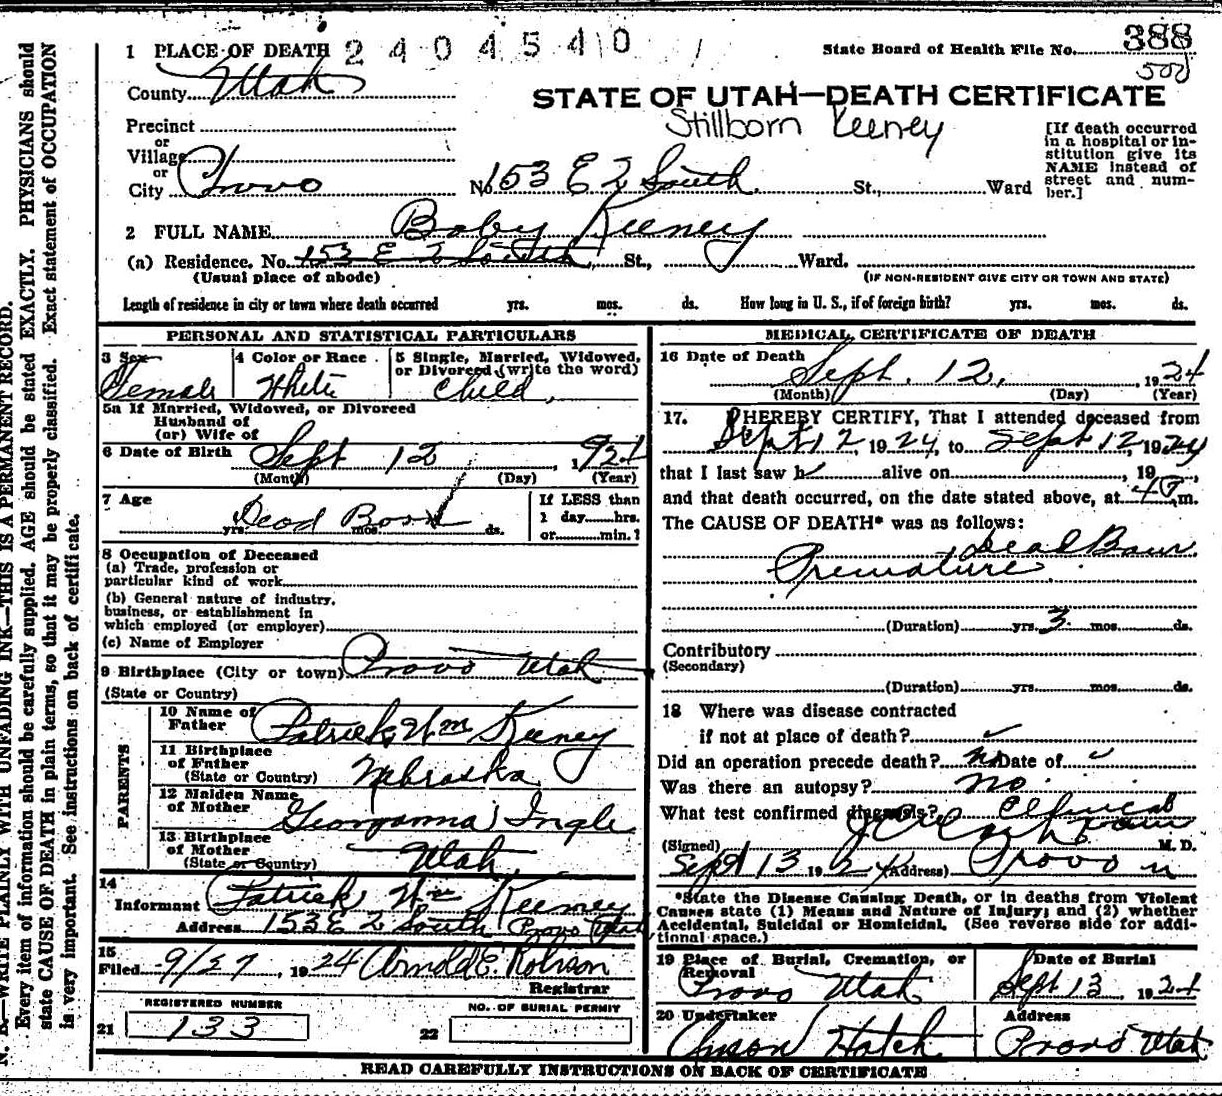 1 PLACE OF DEATH 2404540
State Board of Health File No. 388
County Utah
STATE OF UTAH—DEATH CERTIFICATE
Precinct
Stillborn Keeney
or
Village
or
City Provo No 153 E 2 South St., Ward
[If death occurred
in a hospital or in-
stitution give its
NAME instead of
street and num-
ber.]
2 FULL NAME Baby Keeney
(a) Residence. No. 153 E 2 South St., Ward.
(Usual place of abode) (IF NON-RESIDENT GIVE CITY OR TOWN AND STATE)
Length of residence in city or town where death occurred yrs. mos. ds. How long in U. S., if of foreign birth? yrs. mos. ds.
PERSONAL AND STATISTICAL PARTICULARS
3 Sex
Female
4 Color or Race
White
5 Single, Married, Widowed,
or Divorced (write the word)
Child
5a If Married, Widowed, or Divorced
Husband of
(or) Wife of
6 Date of Birth Sept 12, 1924
(Month) (Day) (Year)
7 Age
Dead Born
yrs. mos. ds.
If LESS than
1 day hrs.
or min.?
8 Occupation of Deceased
(a) Trade, profession or
particular kind of work
(b) General nature of industry,
business, or establishment in
which employed (or employer)
(c) Name of Employer
9 Birthplace (City or town) Provo Utah
(State or Country)
PARENTS
10 Name of
Father Patrick Wm Keeney
11 Birthplace
of Father
(State or Country) Nebraska
12 Maiden Name
of Mother Georganna Ingle
13 Birthplace
of Mother
(State or Country) Utah
14
Informant Patrick Wm Keeney
Address 153 E 2 South Provo Utah
15
Filed 9/27, 1924 Arnold E. Robison
Registrar
REGISTERED NUMBER
21 133
NO. OF BURIAL PERMIT
22
MEDICAL CERTIFICATE OF DEATH
16 Date of Death
Sept. 12, 1924
(Month) (Day) (Year)
17. I HEREBY CERTIFY, That I attended deceased from
Sept 12, 1924, to Sept 12, 1924
that I last saw h alive on , 19 ,
and that death occurred, on the date stated above, at 4 m.
The CAUSE OF DEATH* was as follows:
Dead Born
Premature
(Duration) yrs. 3 mos. ds.
Contributory
(Secondary)
(Duration) yrs. mos. ds.
18 Where was disease contracted
if not at place of death?
Did an operation precede death? no Date of
Was there an autopsy? no
What test confirmed diagnosis? Clinical
(Signed) M. D.
Sept 13 1924 (Address) Provo
*State the Disease Causing Death, or in deaths from Violent
Causes state (1) Means and Nature of Injury; and (2) whether
Accidental, Suicidal or Homicidal. (See reverse side for addi-
tional space.)
19 Place of Burial, Cremation, or
Removal
Provo Utah
Date of Burial
Sept 13, 1924
20 Undertaker
Anson Hatch
Address
Provo Utah
READ CAREFULLY INSTRUCTIONS ON BACK OF CERTIFICATE
N. B.—WRITE PLAINLY WITH UNFADING INK—THIS IS A PERMANENT RECORD.
Every item of information should be carefully supplied. AGE should be stated EXACTLY. PHYSICIANS should
state CAUSE OF DEATH in plain terms, so that it may be properly classified. Exact statement of OCCUPATION
is very important. See instructions on back of certificate.